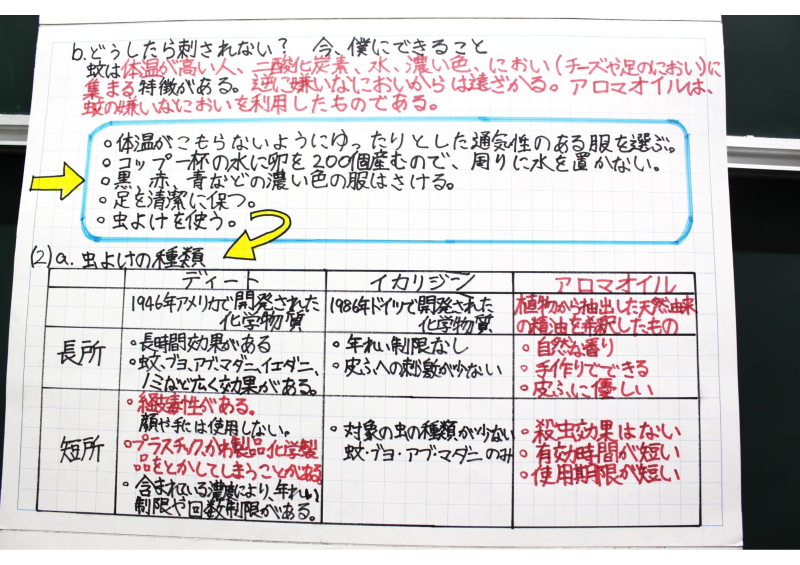 b.どうしたら刺されない？ 今、僕にできること
蚊は体温が高い人、二酸化炭素、水、濃い色、におい(チーズや足のにおい)に
集まる特徴がある。逆に嫌いなにおいからは遠ざかる。アロマオイルは、
蚊の嫌いなにおいを利用したものである。
○体温がこもらないようにゆったりとした通気性のある服を選ぶ。
○コップ一杯の水に卵を200個産むので、周りに水を置かない。
○黒、赤、青などの濃い色の服はさける。
○足を清潔に保つ。
○虫よけを使う。
(2)a.虫よけの種類
ディート イカリジン アロマオイル
1946年アメリカで開発された
化学物質
1986年ドイツで開発された
化学物質
植物から抽出した天然由来
の精油を希釈したもの
長所
・長時間効果がある
・蚊、ブヨ、アブ、マダニ、イエダニ、
ノミなど広く効果がある。
・年れい制限なし
・皮ふへの刺激が少ない
○自然な香り
○手作りでできる
○皮ふに優しい
短所
・経皮毒性がある。
顔や手には使用しない。
○プラスチック、かわ製品、化学製
品をとかしてしまうことがある
・含まれている濃度により、年れい
制限や回数制限がある。
・対象の虫の種類が少ない
蚊・ブヨ・アブ・マダニのみ
○殺虫効果はない
○有効時間が短い
○使用期限が短い